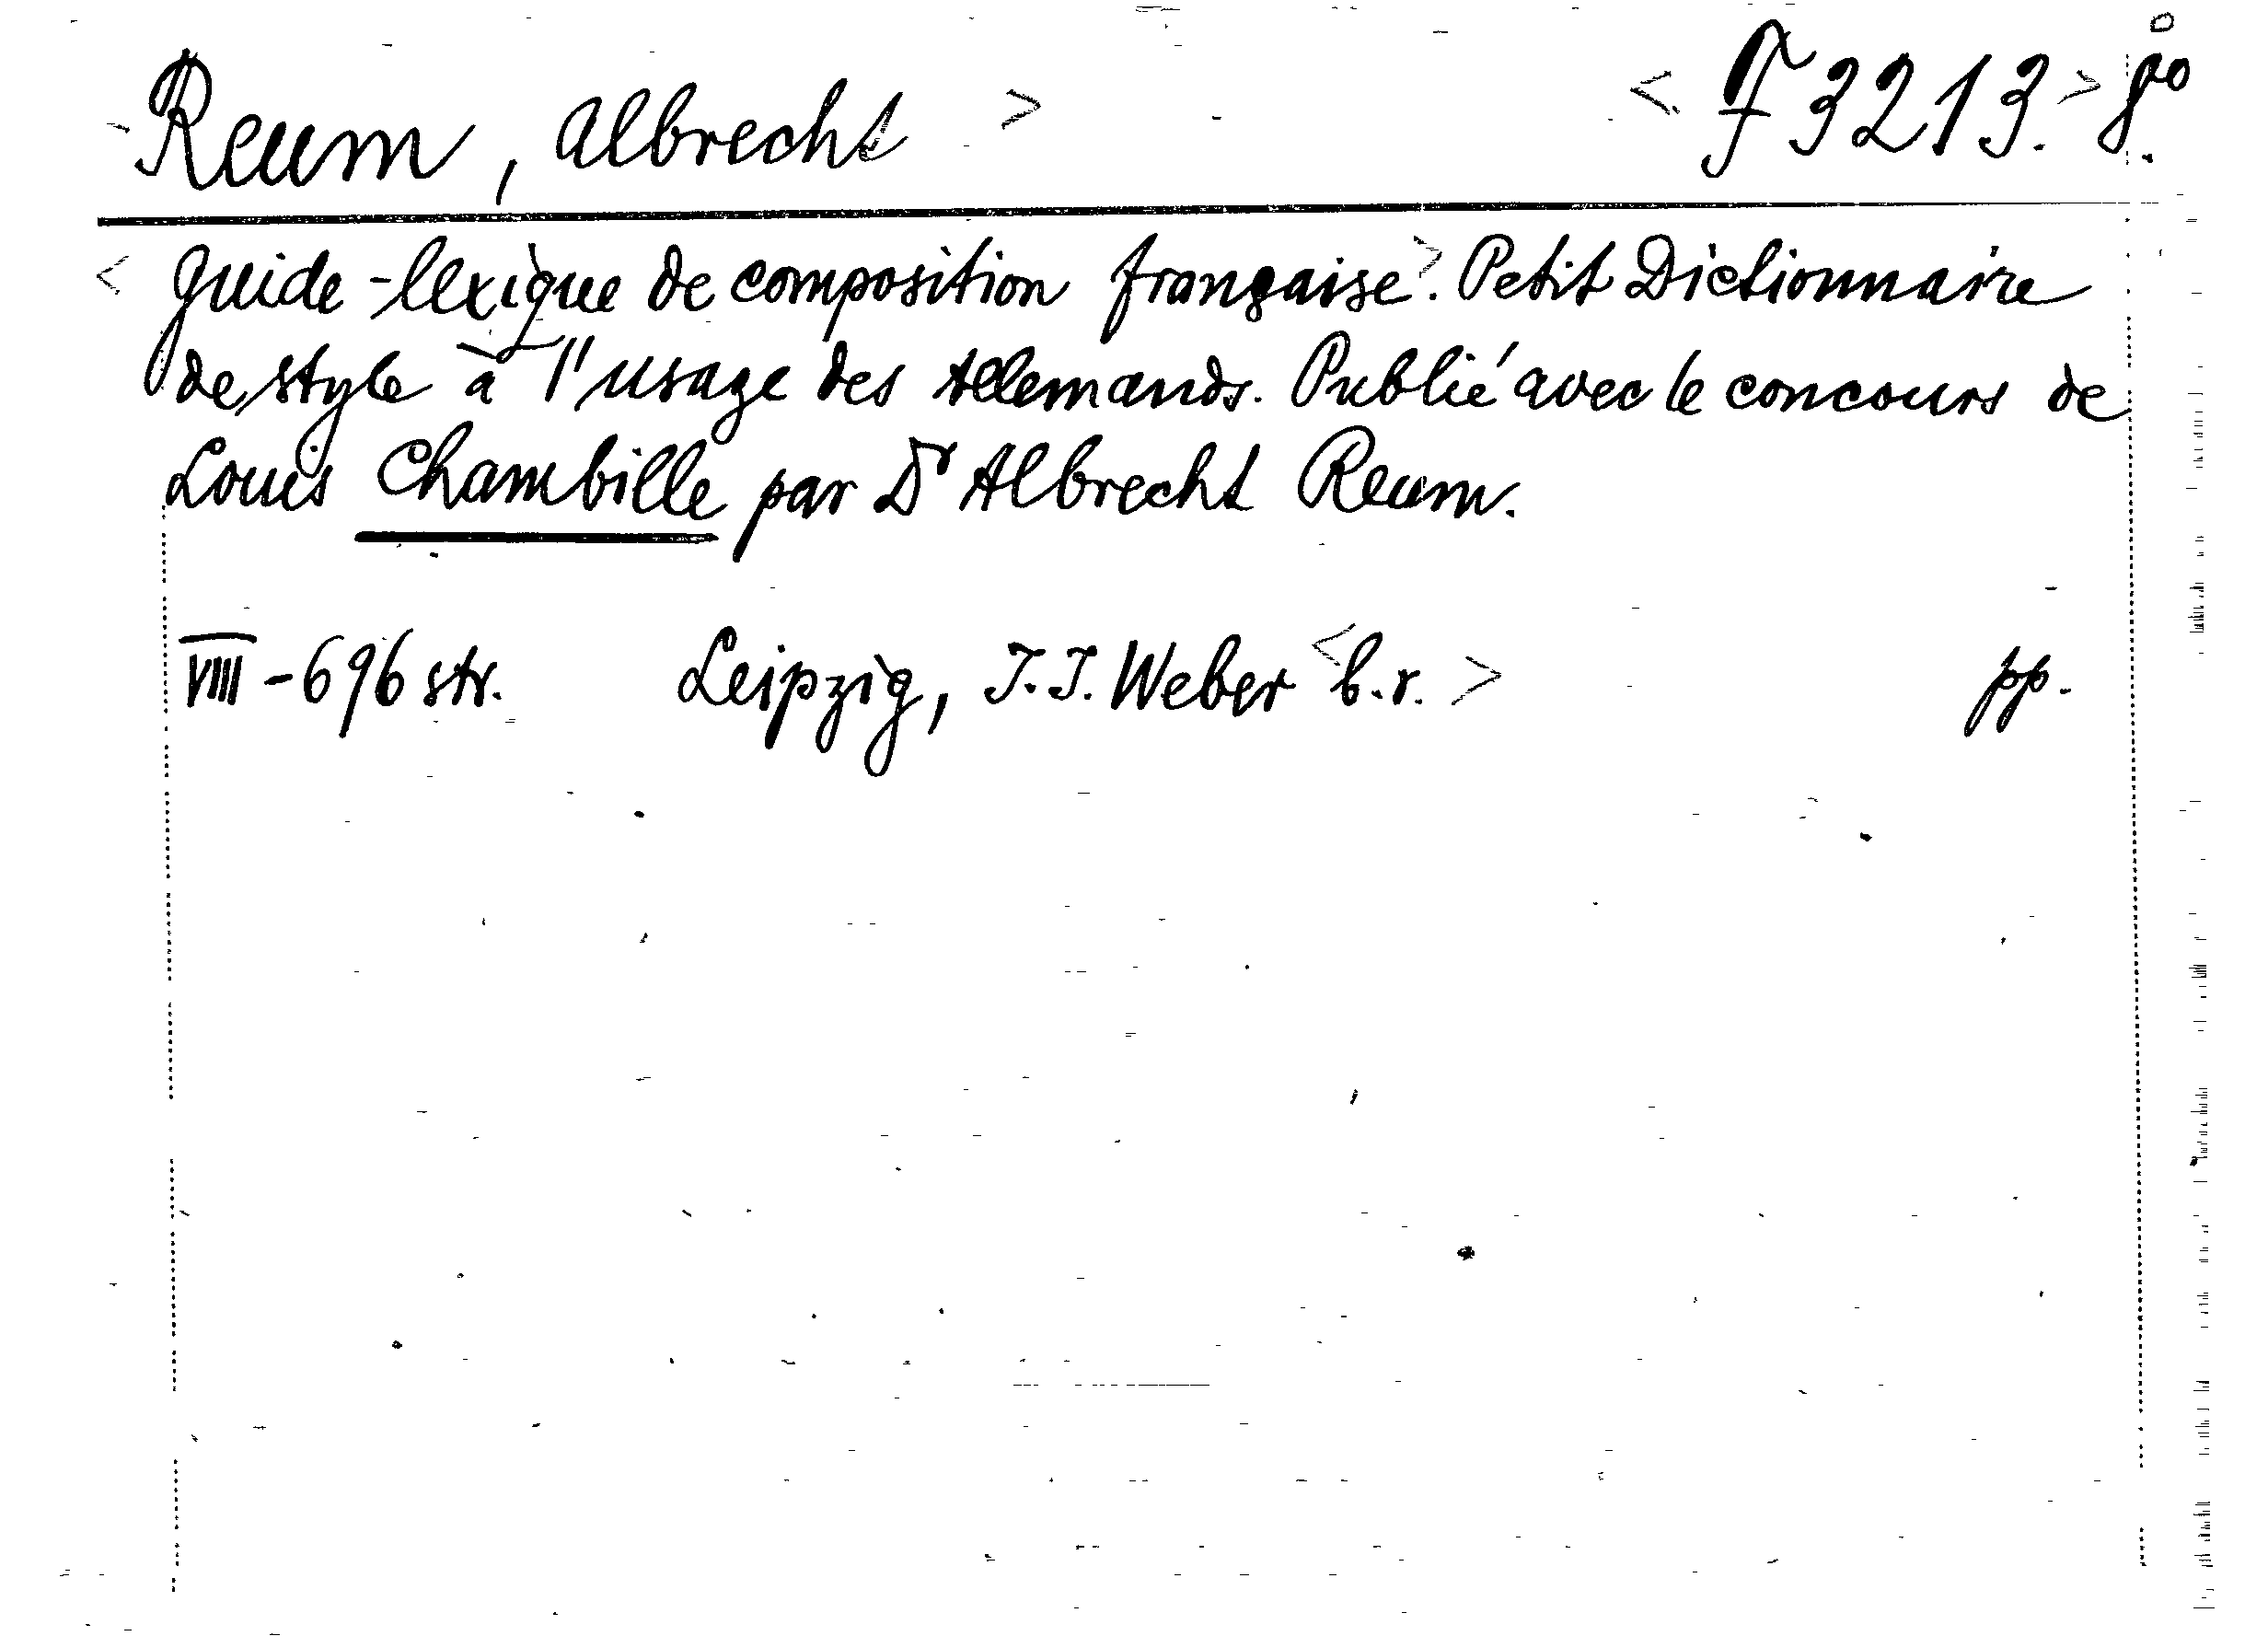 Reum, Albrecht > < F 3213. > 8º
< Guide-lexique de composition française >. Petit Dictionnaire
de style à l'usage des Allemands. Publié avec le concours de
Louis Chambille par Dr Albrecht Reum.
VIII-696 str. Leipzig, J. J. Weber < b.r. > pp.